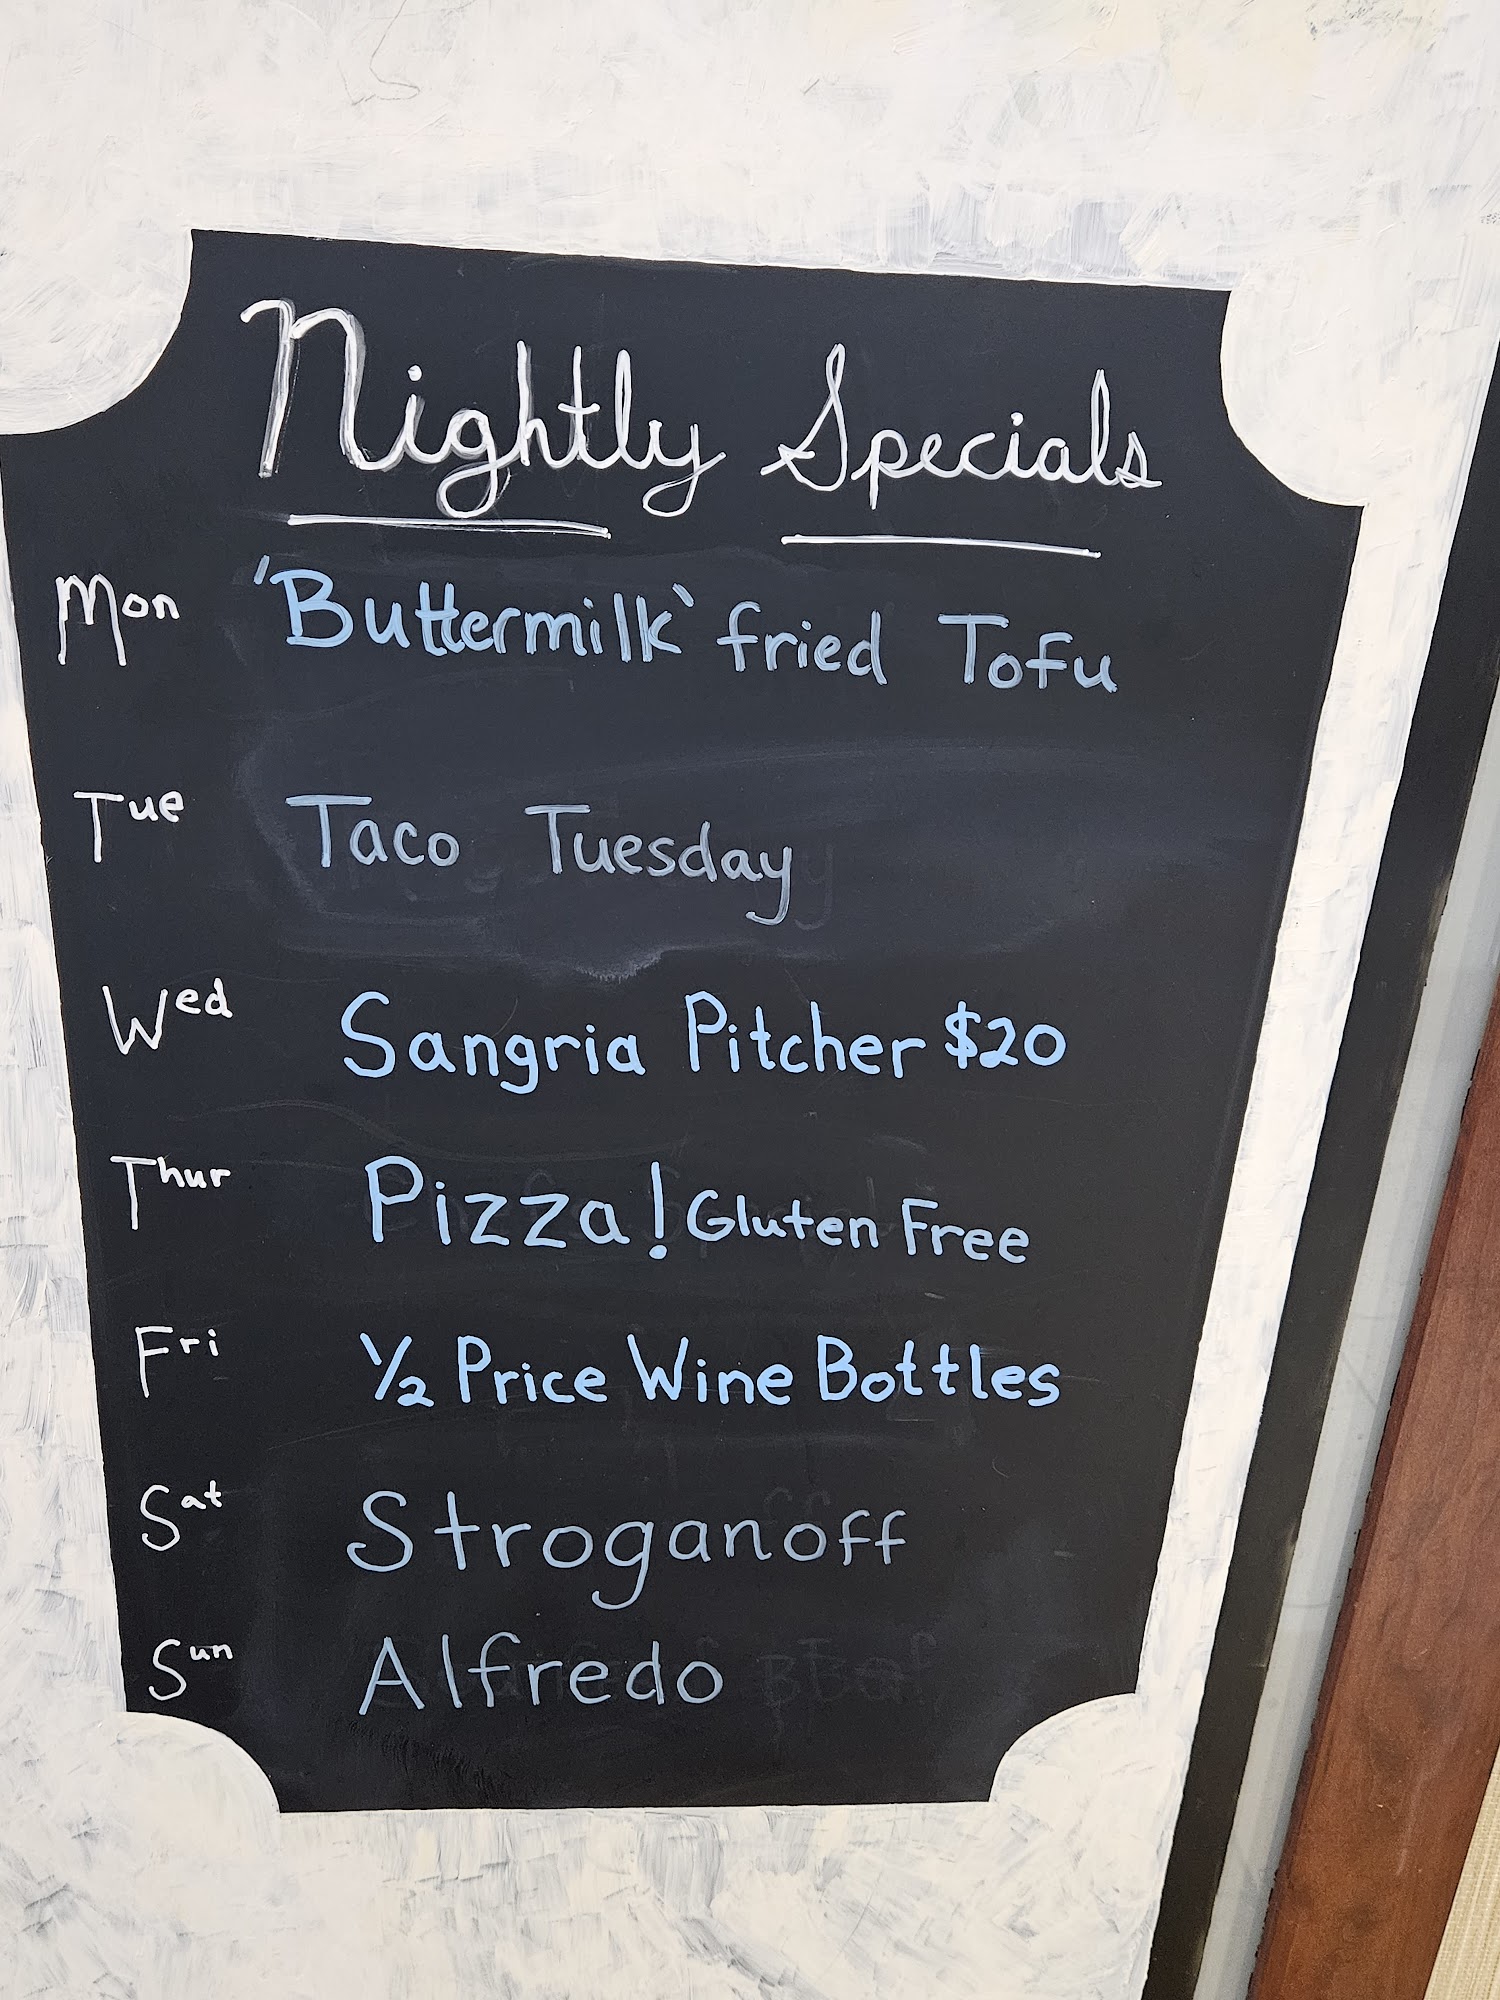 Nightly Specials
Mon 'Buttermilk' fried Tofu
Tue Taco Tuesday
Wed Sangria Pitcher $20
Thur Pizza! Gluten Free
Fri 1/2 Price Wine Bottles
Sat Stroganoff
Sun Alfredo